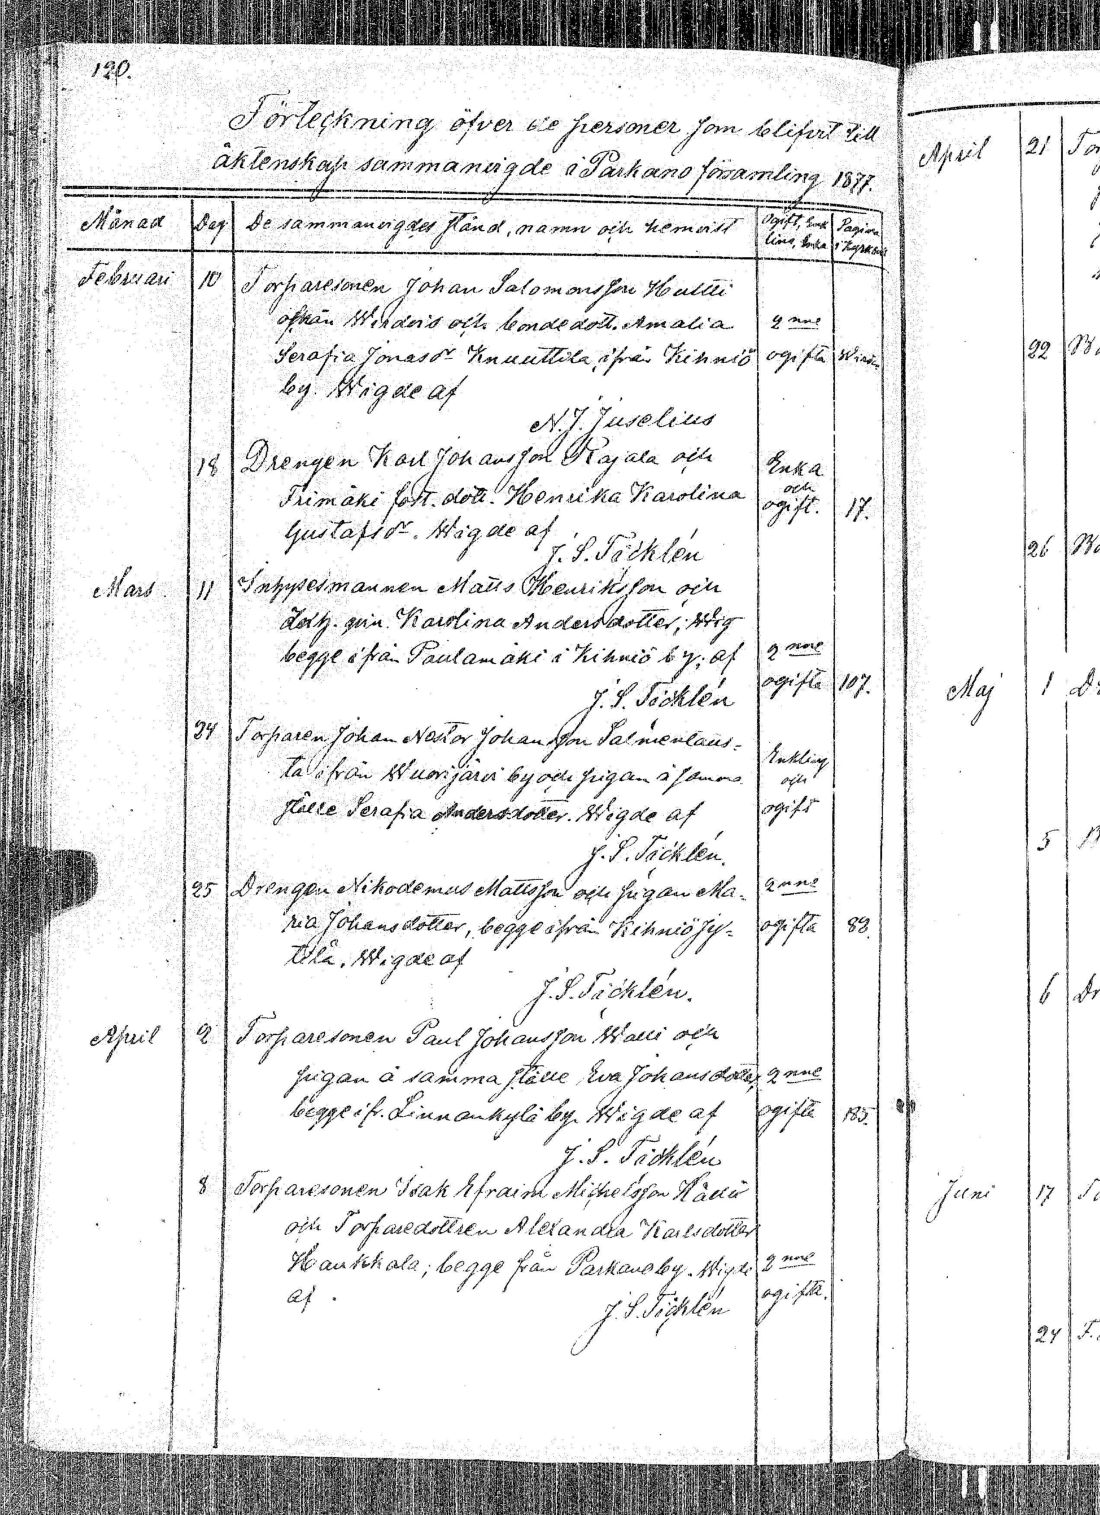 120.
Förteckning öfver de personer som blifvit till
äktenskap sammanvigde i Parkano församling 1877.
Månad Dag De sammanvigdes stånd, namn och hemvist Ogift, Enk Pagina
ling, Enka i Kyrkob.
Februari 10 Torparesonen Johan Salomonsson Hutti
ifrån Wirdois och bondedott. Amalia 2nne
Serafia Jonasdr Knuuttila, ifrån Kihniö ogifta
by. Wigde af
N. J. Juselius
18 Drengen Karl Johansson Rajala och Enka
och
dott. Henrika Karolina ogift. 17.
Gustafsdr. Wigde af
J. S. Täcklén
Mars 11 Inhysesmannen Matts Henriksson och
Karolina Andersdotter, Wig
begge ifrån Paulamäki i Kihniö by; af 2nne
J. S. Täcklén ogifta 107.
24 Torparen Johan Nestor Johansson Salmenlaus-
ta ifrån Wuorijärvi by och pigan å samma Enkling
och
ställe Serafia Andersdotter. Wigde af ogift
J. S. Täcklén.
25 Drengen Nikodemus Mattsson och pigan Ma- 2nne
ria Johansdotter, begge ifrån Kihniö Jy- ogifta 82.
tilä. Wigde af
J. S. Täcklén.
April 2 Torparesonen Paul Johansson Walli och
pigan å samma ställe Eva Johansdotter, 2nne
begge ifr. Linnankylä by. Wigde af ogifta 185.
J. S. Täcklén
8 Torparesonen Isak Efraim Michelsson
och Torparedottren Alexandra Karlsdotter
Haukkala; begge från Parkano by. Wigde 2nne
af ogifta.
J. S. Täcklén
April 21
22
26
Maj 1
5
6
Juni 17
24